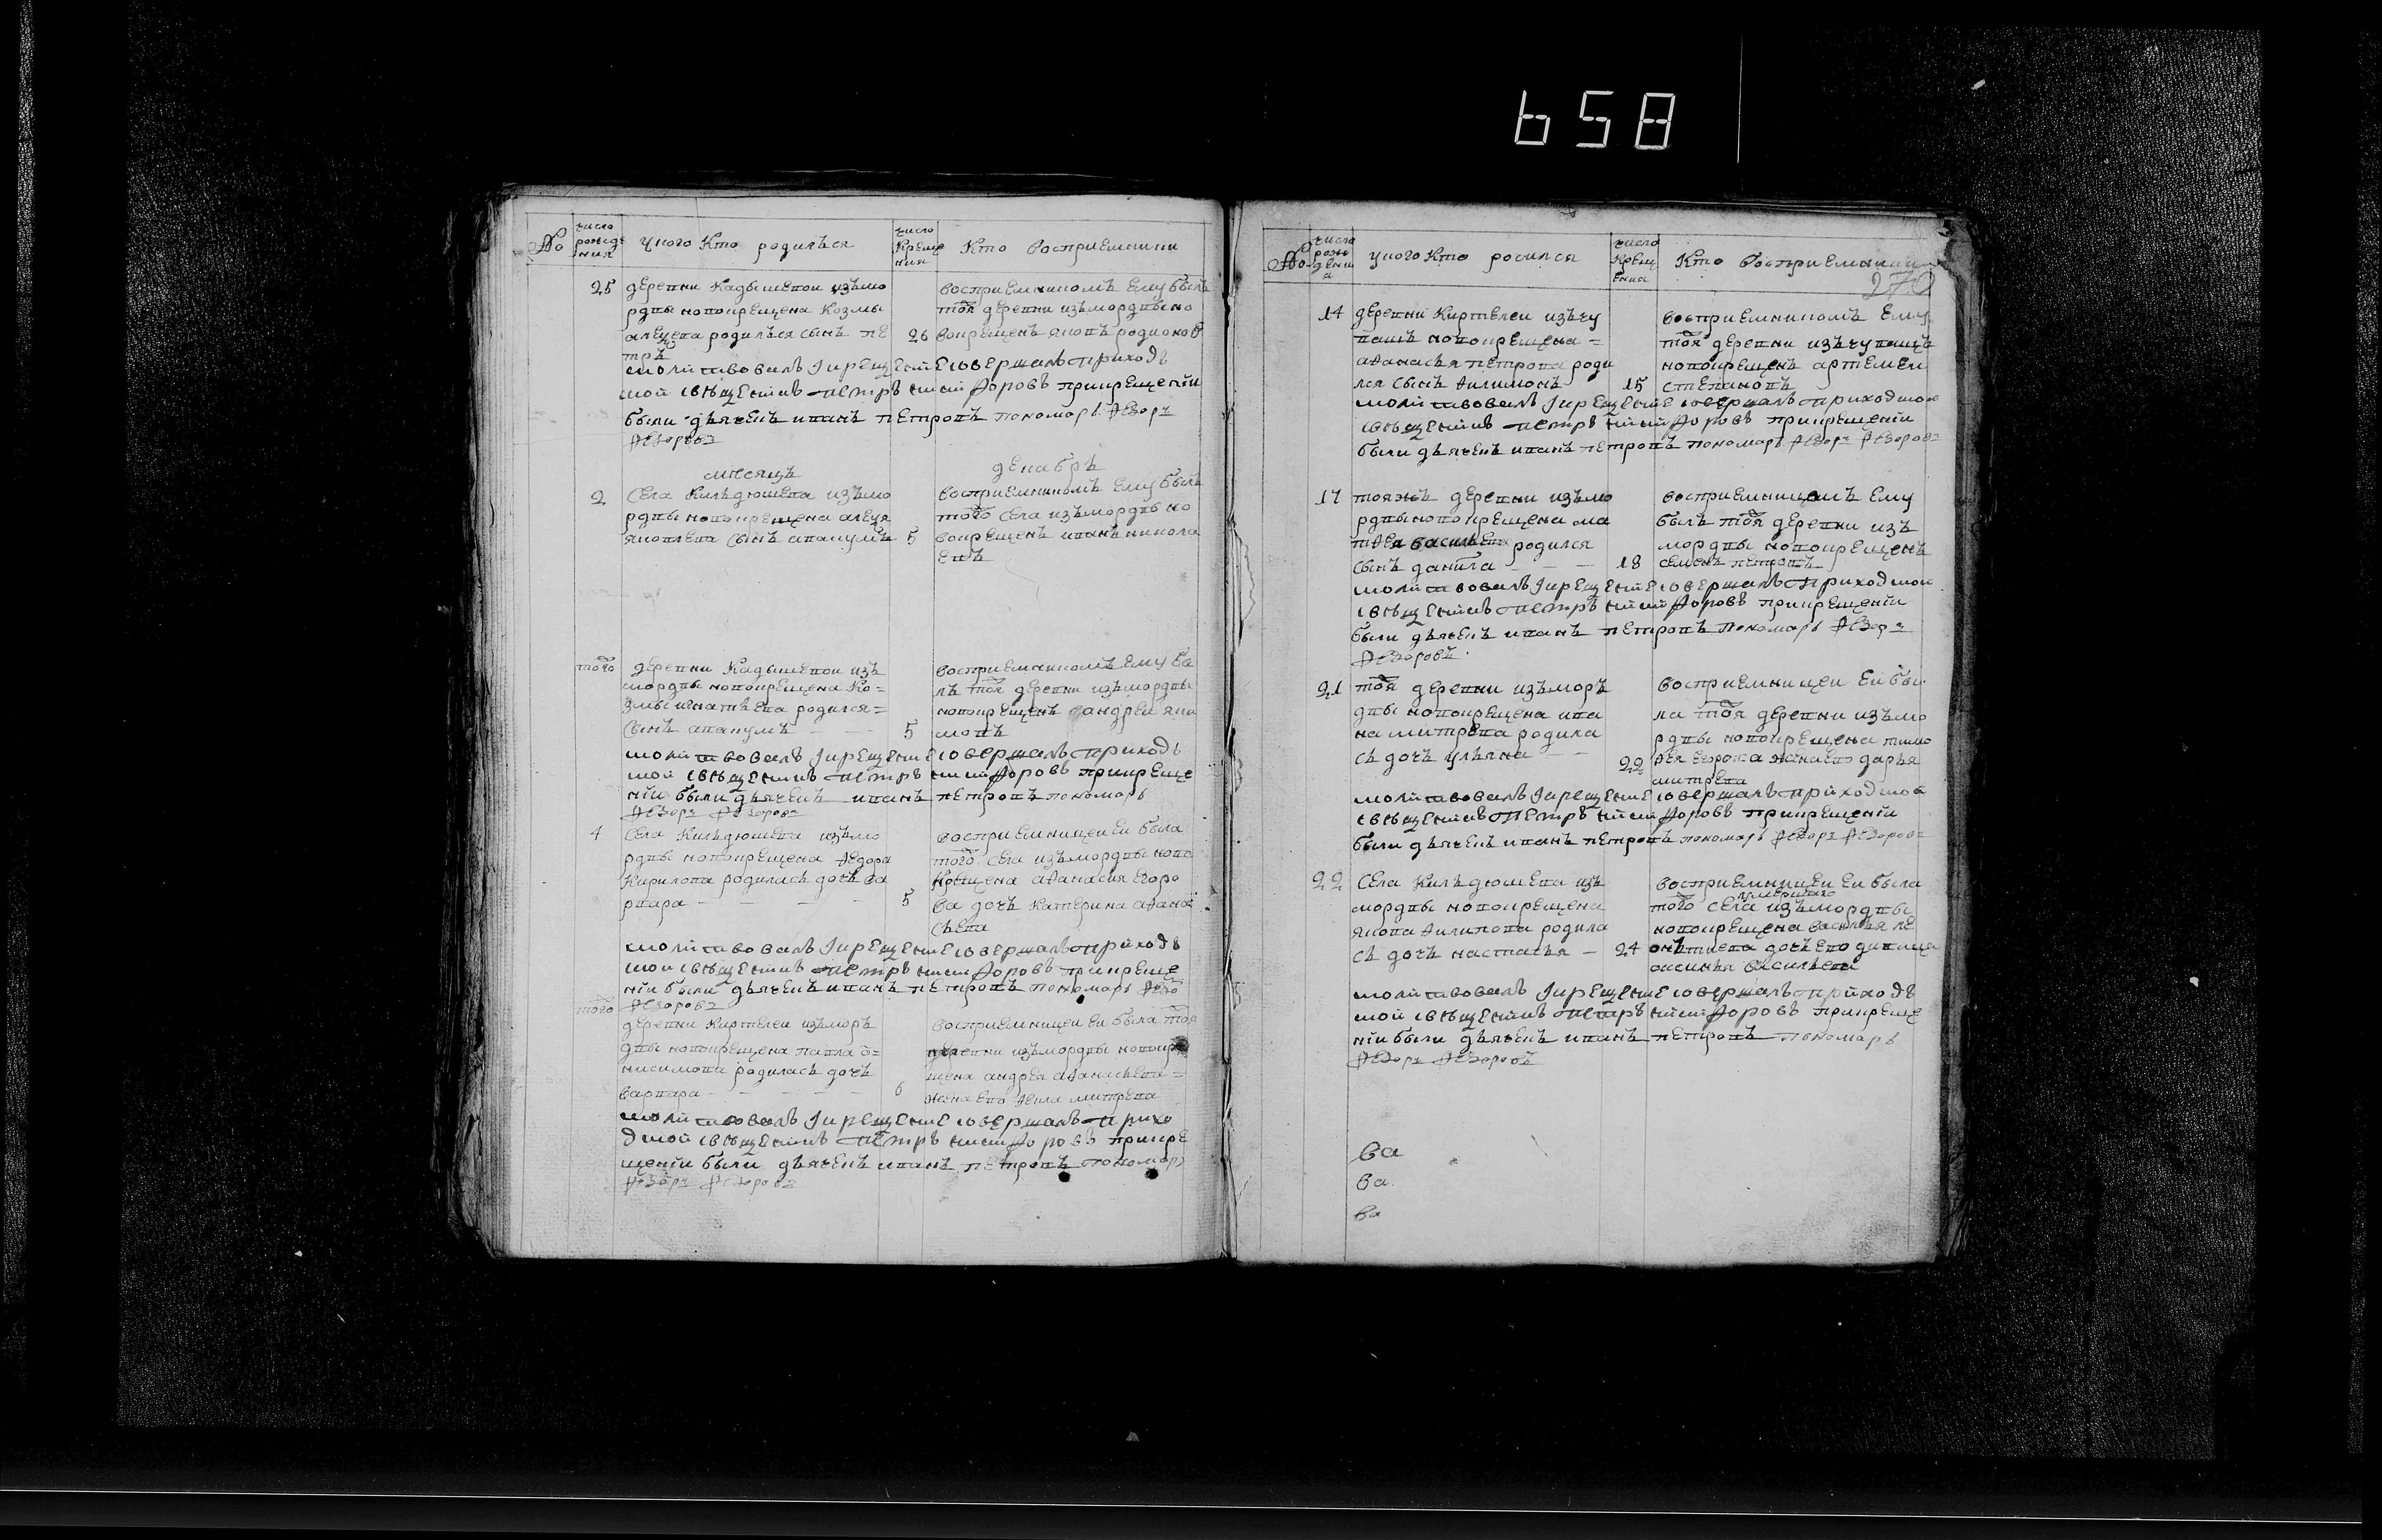 658
№
число рождения
у кого кто родилъся
число крещения
кто восприемники
25
деревни Кадышевои изъ мо
рдвы новокрещена Козмы
родилъся сынъ пе
тръ
26
восприемникомъ ему былъ
тоя деревни изъ мордвы но
вокрещенъ яковъ родионов
молитвовалъ и крещение совершалъ приход
ской священникъ Петръ при крещении
были дьячекъ иванъ петровъ пономарь Федоръ
Федоровъ
месяцъ декабрь
2
села Кильдюшева изъ мо
рдвы новокрещена
яковлева сынъ авакумъ
5
восприемникомъ ему былъ
того села изъ мордвы но
вокрещенъ иванъ никола
евъ
того
деревни Кадышевои изъ
мордвы новокрещена Ко=
змы игнатьева родился=
сынъ авакумъ
5
восприемникомъ ему бы
лъ тоя деревни изъ мордвы
новокрещенъ андреи яки
мовъ
молитвовалъ и крещение совершалъ приход
ской священникъ Петръ при креще
нии были дьячекъ иванъ петровъ пономарь
Федоръ Федоровъ
4
села Кильдюшева изъ мо
рдвы новокрещена Федора
Кирилова родилась дочь ва
рвара
5
восприемницеи еи была
того села изъ мордвы ново
крещена афанасия егоро
ва дочь катерина афана
сьева
молитвовалъ и крещение совершалъ приход
ской священникъ Петръ при креще
нии были дьячекъ иванъ петровъ пономарь Федо
Федоровъ
того
деревни Киртелеи изъ мор
двы новокрещена павла о=
нисимова родилась дочь
варвара
6
восприемницеи еи была тоя
деревни изъ мордвы новокре
щена андрея афанасьева=
жена ево фекла митрева
молитвовалъ и крещение совершалъ прихо
дской священникъ Петръ при кре
щении были дьячекъ иванъ петровъ пономарь
Федоръ Федоровъ
№
число рождении
у кого кто родился
число крещения
кто восприемники
270
14
деревни Киртелеи изъ чу
вашъ новокрещена=
афанасья петрова роди
лся сынъ филимонъ
15
восприемникомъ ему
тоя деревни изъ чувашъ
новокрещенъ артемеи
степановъ
молитвовалъ и крещение совершалъ приходской
священникъ Петръ при крещении
были дьячекъ иванъ петровъ пономарь Федоръ Федоровъ
17
тояжъ деревни изъ мо
рдвы новокрещена ма
тфея васильева родился
сынъ данила
18
восприемникомъ ему
былъ тоя деревни изъ
мордвы новокрещенъ
семенъ петровъ
молитвовалъ и крещение совершалъ приходской
священникъ Петръ при крещении
были дьячекъ иванъ петровъ пономарь Федоръ
Федоровъ
21
тоя деревни изъ моръ
двы новокрещена ива
на митрева родила
сь дочь ульяна
22
восприемницеи еи бы
ла тоя деревни изъ мо
рдвы новокрещена тимо
фея егорова жена ево дарья
митрева
молитвовалъ и крещение совершалъ приходской
священникъ Петръ при крещении
были дьячекъ иванъ петровъ пономарь Федоръ Федоровъ
22
села Кильдюшева изъ
мордвы новокрещена
якова филипова родила
сь дочь настасья
24
восприемницеи еи была
умершаго
того села изъ мордвы
новокрещена василья ле
онтиева дочь ево девица
аксинья васильева
молитвовалъ и крещение совершалъ приход
ской священникъ Петръ при креще
нии были дьячекъ иванъ петровъ пономарь
Федоръ Федоровъ
ва
ва
ва